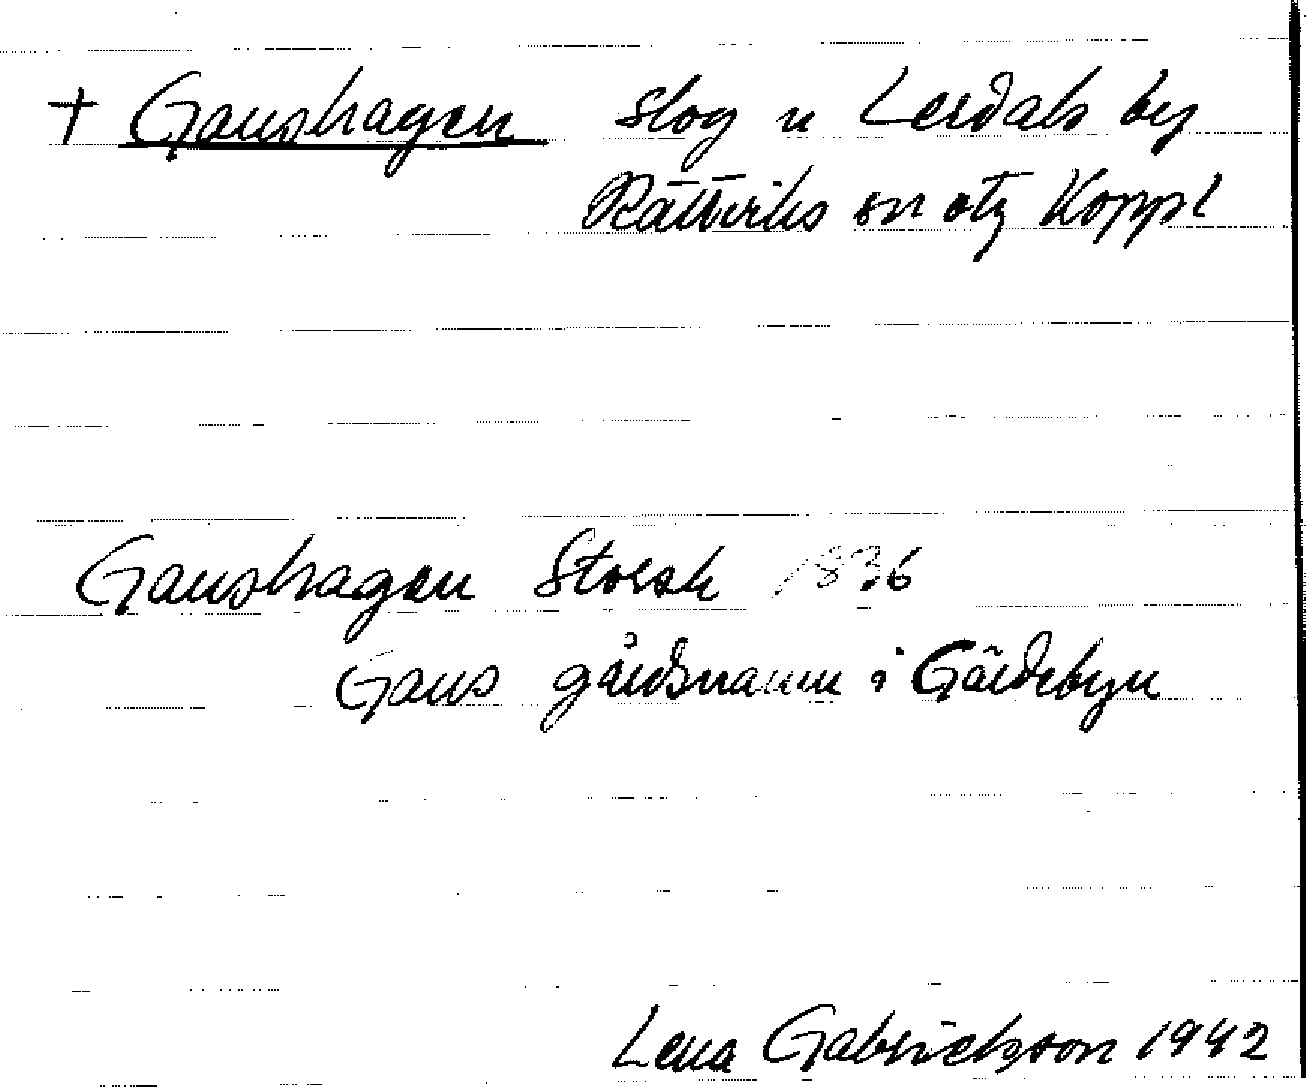 + Gaushagen slog u Lerdals by
Rättviks sn o tg Koppl
Gaushagen Storsk 1836
Gaus gårdsnamn i Gärdebyn
Lena Gabrielsson 1942